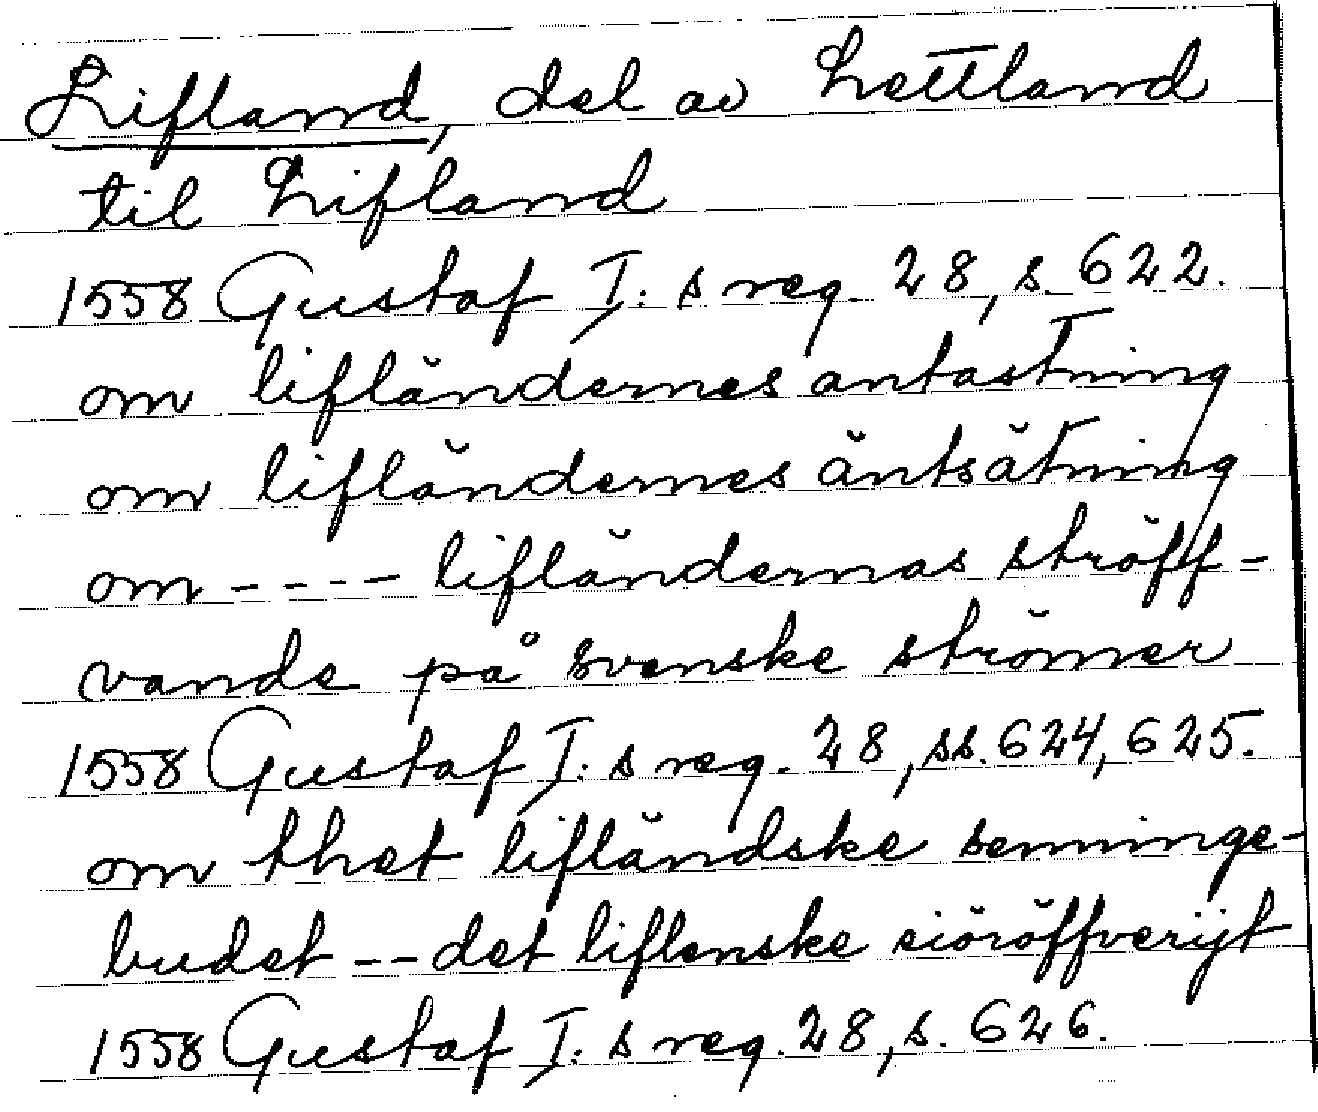 Lifland, del av Lettland
til Lifland
1558 Gustaf I:s reg. 28, s. 622.
om lifländernes antastning
om lifländernes äntsätning
om - - - - lifländernas ströff-
vande på svenske strömer
1558 Gustaf I:s reg. 28, ss. 624, 625.
om thet lifländske senninge-
budet -- det liflenske siöröffverijt
1558 Gustaf I:s reg. 28, s. 626.